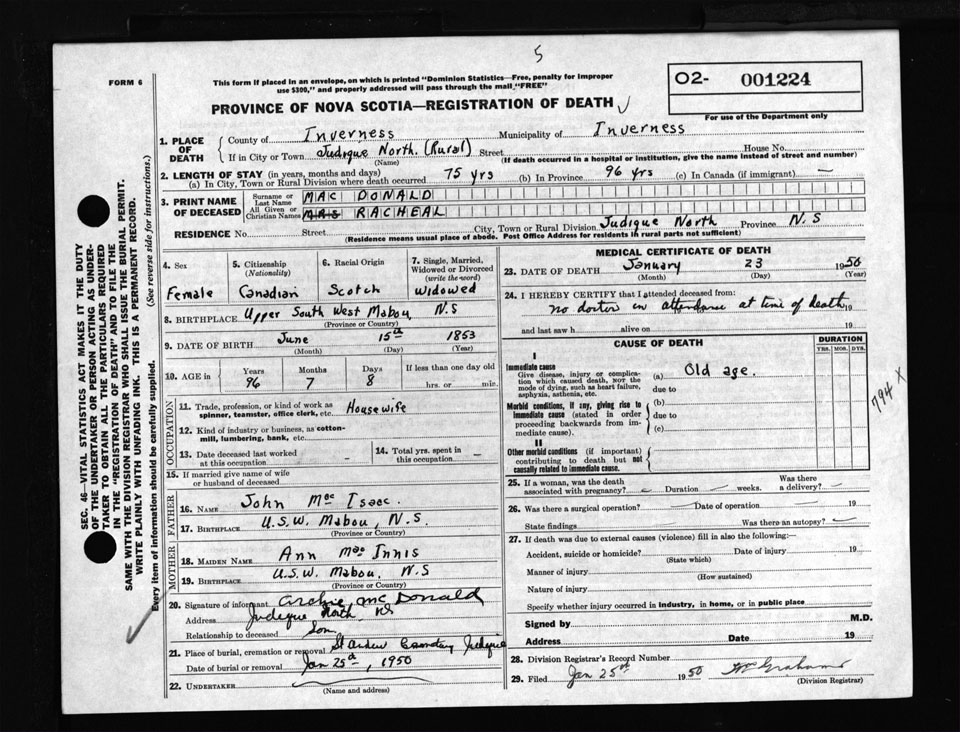 5
FORM 6
This form if placed in an envelope, on which is printed "Dominion Statistics—Free, penalty for improper
use $300," and properly addressed will pass through the mail "FREE"
O2- 001224
For use of the Department only
PROVINCE OF NOVA SCOTIA—REGISTRATION OF DEATH
1. PLACE OF DEATH
County of Inverness Municipality of Inverness
If in City or Town Judique North. (Rural) Street House No.
(Name) (If death occurred in a hospital or institution, give the name instead of street and number)
2. LENGTH OF STAY (in years, months and days)
(a) In City, Town or Rural Division where death occurred 75 yrs (b) In Province 96 yrs (c) In Canada (if immigrant) —
3. PRINT NAME OF DECEASED
Surname or Last Name MAC DONALD
All Given or Christian Names MRS RACHEAL
RESIDENCE No. Street City, Town or Rural Division Judique North Province N.S
(Residence means usual place of abode. Post Office Address for residents in rural parts not sufficient)
4. Sex Female
5. Citizenship (Nationality) Canadian
6. Racial Origin Scotch
7. Single, Married, Widowed or Divorced (write the word) Widowed
8. BIRTHPLACE Upper South West Mabou, N.S
(Province or Country)
9. DATE OF BIRTH June 15th 1853
(Month) (Day) (Year)
10. AGE in Years 96 Months 7 Days 8 If less than one day old hrs. or min.
OCCUPATION
11. Trade, profession, or kind of work as spinner, teamster, office clerk, etc. Housewife
12. Kind of industry or business, as cotton-mill, lumbering, bank, etc.
13. Date deceased last worked at this occupation -
14. Total yrs. spent in this occupation -
15. If married give name of wife or husband of deceased
FATHER
16. NAME John Mac Isaac.
17. BIRTHPLACE U.S.W. Mabou, N.S.
(Province or Country)
MOTHER
18. MAIDEN NAME Ann Mac Innis
19. BIRTHPLACE U.S.W. Mabou. N.S
(Province or Country)
20. Signature of informant Archie McDonald
Address Judique North NS
Relationship to deceased Son
21. Place of burial, cremation or removal St Andew Judique
Date of burial or removal Jan 25th, 1950
22. UNDERTAKER
(Name and address)
MEDICAL CERTIFICATE OF DEATH
23. DATE OF DEATH January 23 1950
(Month) (Day) (Year)
24. I HEREBY CERTIFY that I attended deceased from:
no doctor in attendance at time of death 19
and last saw h alive on 19
CAUSE OF DEATH
DURATION
YRS. MOS. DYS.
I
Immediate cause
Give disease, injury or complication which caused death, NOT the mode of dying, such as heart failure, asphyxia, asthenia, etc.
(a) Old age.
due to
Morbid conditions, if any, giving rise to immediate cause (stated in order proceeding backwards from immediate cause).
(b)
due to
(c)
II
Other morbid conditions (if important) contributing to death but not causally related to immediate cause.
794 X
25. If a woman, was the death associated with pregnancy? Duration weeks. Was there a delivery?
26. Was there a surgical operation? Date of operation 19
State findings Was there an autopsy?
27. If death was due to external causes (violence) fill in also the following:—
Accident, suicide or homicide? Date of injury 19
(State which)
Manner of injury
(How sustained)
Nature of injury
Specify whether injury occurred in industry, in home, or in public place
Signed by M.D.
Address Date 19
28. Division Registrar's Record Number
29. Filed Jan 25th 1950 Graham
(Division Registrar)
SEC. 46—VITAL STATISTICS ACT MAKES IT THE DUTY
OF THE UNDERTAKER OR PERSON ACTING AS UNDER-
TAKER TO OBTAIN ALL THE PARTICULARS REQUIRED
IN THE "REGISTRATION OF DEATH" AND TO FILE THE
SAME WITH THE DIVISION REGISTRAR WHO SHALL ISSUE THE BURIAL PERMIT.
WRITE PLAINLY WITH UNFADING INK. THIS IS A PERMANENT RECORD.
Every item of information should be carefully supplied. (See reverse side for instructions.)